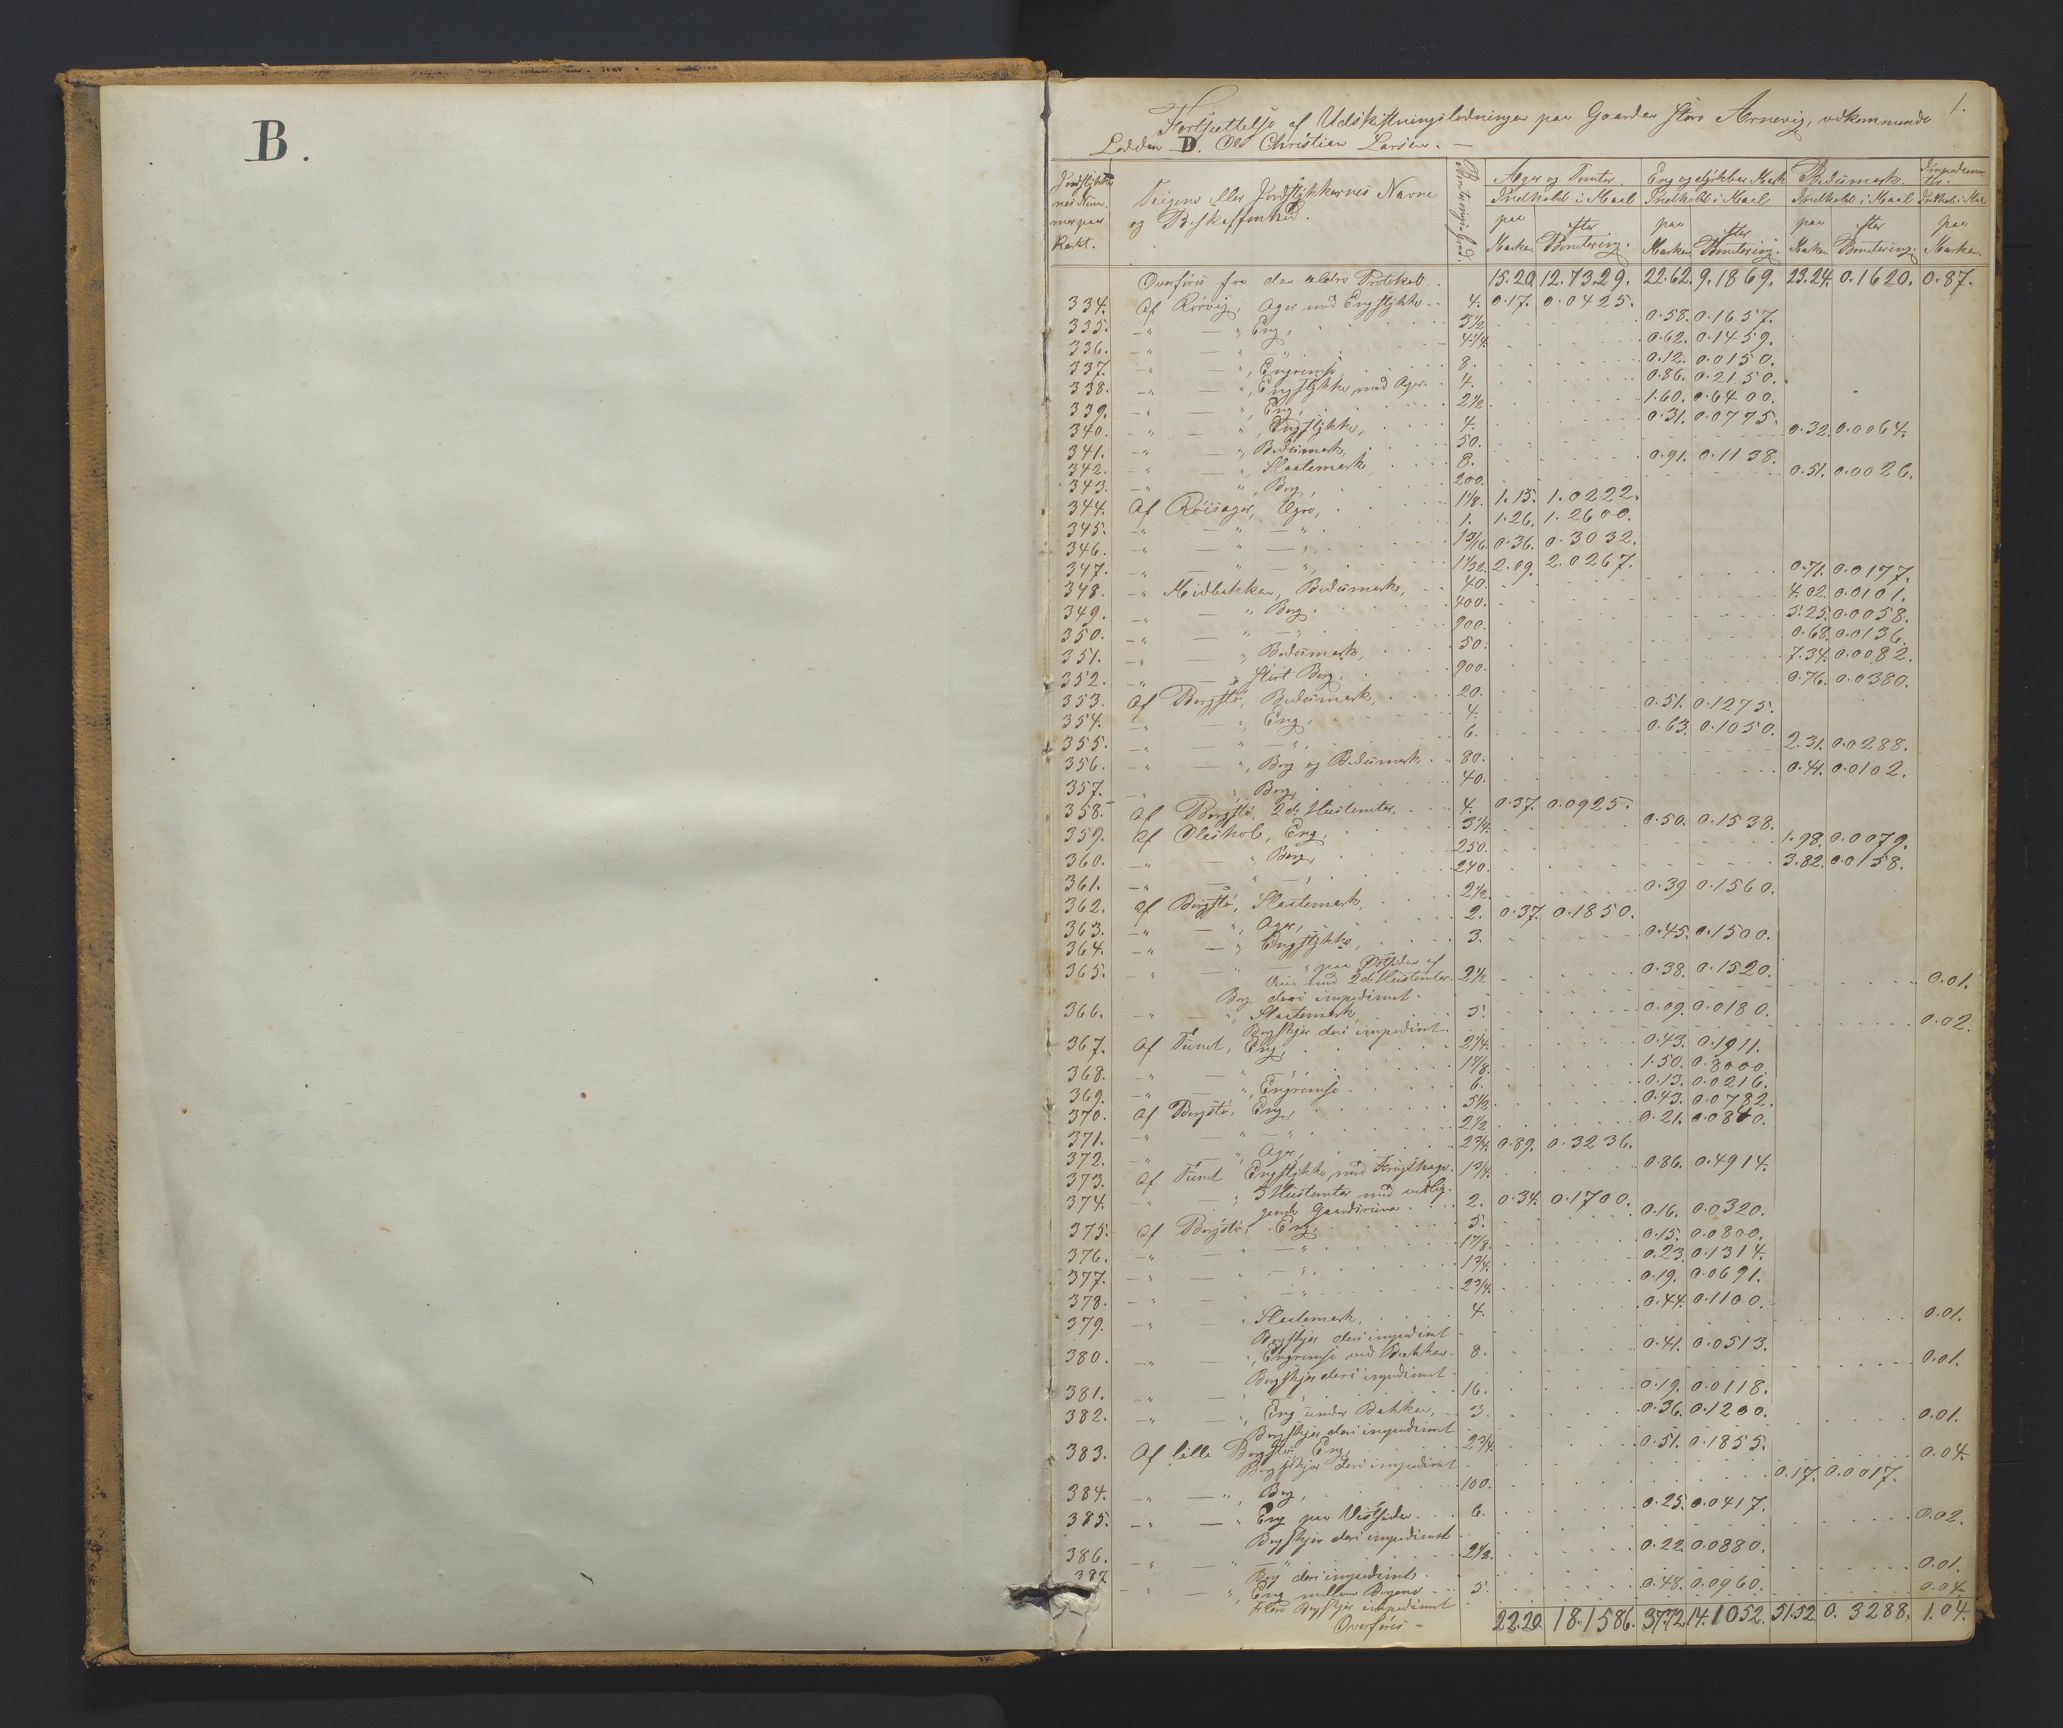 B.
1.
Fortsættelse af Udskiftningslodningen paa Gaarden Store Arnevig, vedkommende
Lodden D. Ole Christian Larsen. —
Jordstykker-nes Num-mer paa Kartet. Teigens eller Jordstykkernes Navne og Beskaffenhed. Boniterings Grad. Ager og Tomter. Eng og dyrkbar Mark Bedesmark. Impedimen-ter.
Indhold i Maal Indhold i Maal Indhold i Maal Indhold i Maal
paa Marken. efter Bonitering. paa Marken. efter Bonitering. paa Marken. efter Bonitering. paa Marken.
Overføres fra den ældre Protokol 15.20. 12.7329. 22.62. 9.1869. 23.24. 0.1620. 0.87.
334. Af Rørvig, Ager med Engstykke 4. 0.17. 0.0425.
335. —"— ", Eng, 3½ 0.58. 0.1657.
336. —"— " " 4¼. 0.62. 0.1459.
337. —"— ", Engremse, 8. 0.12. 0.0150.
338. —"— ", Engstykke med Ager. 4. 0.86. 0.2150.
339. —"— ", Eng, 2½ 1.60. 0.6400.
340. —"— ", Engstykke, 4. 0.31. 0.0775.
341. —"— ", Bedesmark, 50. 0.32. 0.0064.
342. —"— ", Slaatemark, 8. 0.91. 0.1138.
343. —"— ", Berg, 200. 0.51. 0.0026.
344. Af Røisager, Agre, 1⅛. 1.15. 1.0222.
345. —"— " — " 1. 1.26. 1.2600.
346. —"— " — " 1 3/16. 0.36. 0.3032.
347. —"— " — " 1 1/32. 2.09. 2.0267.
348. —" Midbakken, Bedesmark, 40. 0.71. 0.0177.
349. —"— " Berg. 400. 4.02. 0.0101.
350. —"— " — " 900. 5.25. 0.0058.
351. —"— ", Bedesmark, 50. 0.68. 0.0136.
352. —"— ", stort Berg. 900. 7.34. 0.0082.
353. Af Bergstø, Bedesmark, 20. 0.76. 0.0380.
354. —"— ", Eng, 4. 0.51. 0.1275.
355. —"— " — " 6. 0.63. 0.1050.
356. —"— ", Berg og Bedesmark 80. 2.31. 0.0288.
357. —"— ", Berg, 40. 0.41. 0.0102.
358. Af Bergstø, 2de Hustomter. 4. 0.37. 0.0925.
359. Af Oleskob, Eng, 3¼. 0.50. 0.1538.
360. —"— ", Berg, 250. 1.98. 0.0079.
361. —"— " — " 240. 3.82. 0.0158.
362. Af Bergstø, Slaatemark, 2½. 0.39 0.1560.
363. —"— ", Ager, 2. 0.37. 0.1850.
364. —"— ", Engstykke, 3. 0.45. 0.1500.
365. —"— " " paa Østsiden af
Veien med 2de Hustomter. 2½ 0.38. 0.1520.
Berg deri impediment. 0.01.
366. —"— ", Slaatemark, 5. 0.09. 0.0180.
Bergskjær deri impedimt. 0.02.
367. Af Tunet, Eng, 2¼. 0.43. 0.1911.
368. —"— " " 1⅞. 1.50. 0.8000.
369. —"— ", Engremse. 6. 0.13. 0.0216.
370. Af Bergstø, Eng, 5½ 0.43. 0.0782.
371. —"— " — " 2½ 0.21. 0.0840.
372. —"— ", Ager, 2¾. 0.89. 0.3236.
373. Af Tunet Engstykke med Frugthage. 1¾. 0.86. 0.4914.
374. —"— ", 3 Hustomter med vedlig-
gende Gaardsrum 2. 0.34. 0.1700.
375. Af Bergstø, Eng, 5. 0.16. 0.0320.
376. —"— " — " 1⅞. 0.15. 0.0800.
377. —"— " — " 1¾. 0.23. 0.1314.
378. —"— " — " 2¾. 0.19. 0.0691.
379. —"— ", Slaatemark, 4. 0.44. 0.1100.
Bergskjær deri impedimt 0.01.
380. —"— ", Engremse ved Bækken. 8. 0.41. 0.0513.
Bergskjær deri impediment 0.01.
381. —"— " " 16. 0.19. 0.0118.
382. —"— ", Eng under Bakken, 3. 0.36. 0.1200.
Bergskjær deri impediment 0.01.
383. Af lille Bergstø, Eng, 2¾. 0.51. 0.1855.
Bergskjær deri impediment 0.04.
384. —"— ", Berg, 100. 0.17. 0.0017.
385. —"— ", Eng paa Vestsiden 6. 0.25. 0.0417.
Bergskjær deri impediment 0.02.
386. —"— " " 2½. 0.22. 0.0880.
Berg deri impediment. 0.01.
387 —"— ", Eng mellem Bergene 5. 0.48. 0.0960.
Flere Bergskjær impediment 0.04.
Overføres — 22.20. 18.1586. 37.72. 14.1052. 51.52. 0.3288. 1.04.